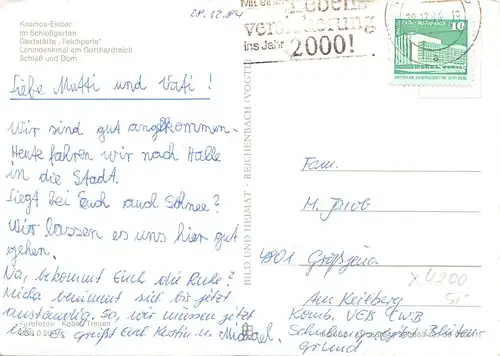 28.12.84
Kosmos-Eisbar
im Schloßgarten
Gaststätte „Teichperle"
Lenindenkmal am Gotthardteich
Schloß und Dom
Mit einer
Lebens
versicherung
ins Jahr 2000!
10
Liebe Mutti und Vati!
Wir sind gut angekommen.
Heute fahren wir nach Halle
in die Stadt.
Liegt bei Euch auch Schnee?
Wir lassen es uns hier gut
gehen.
Na, bekommt Euch die Ruhe?
Micha benimmt sich bis jetzt
anständig. So, wir müssen jetzt
es grüßt Euch Kerstin u. Michael.
Farbfotos: Kober, Treuen
BILD UND HEIMAT · REICHENBACH (VOGTL
Fam.
M. Jacob
4901 Großgena
Am Keilberg
Komb. VEB CWB
grund!
x 4200